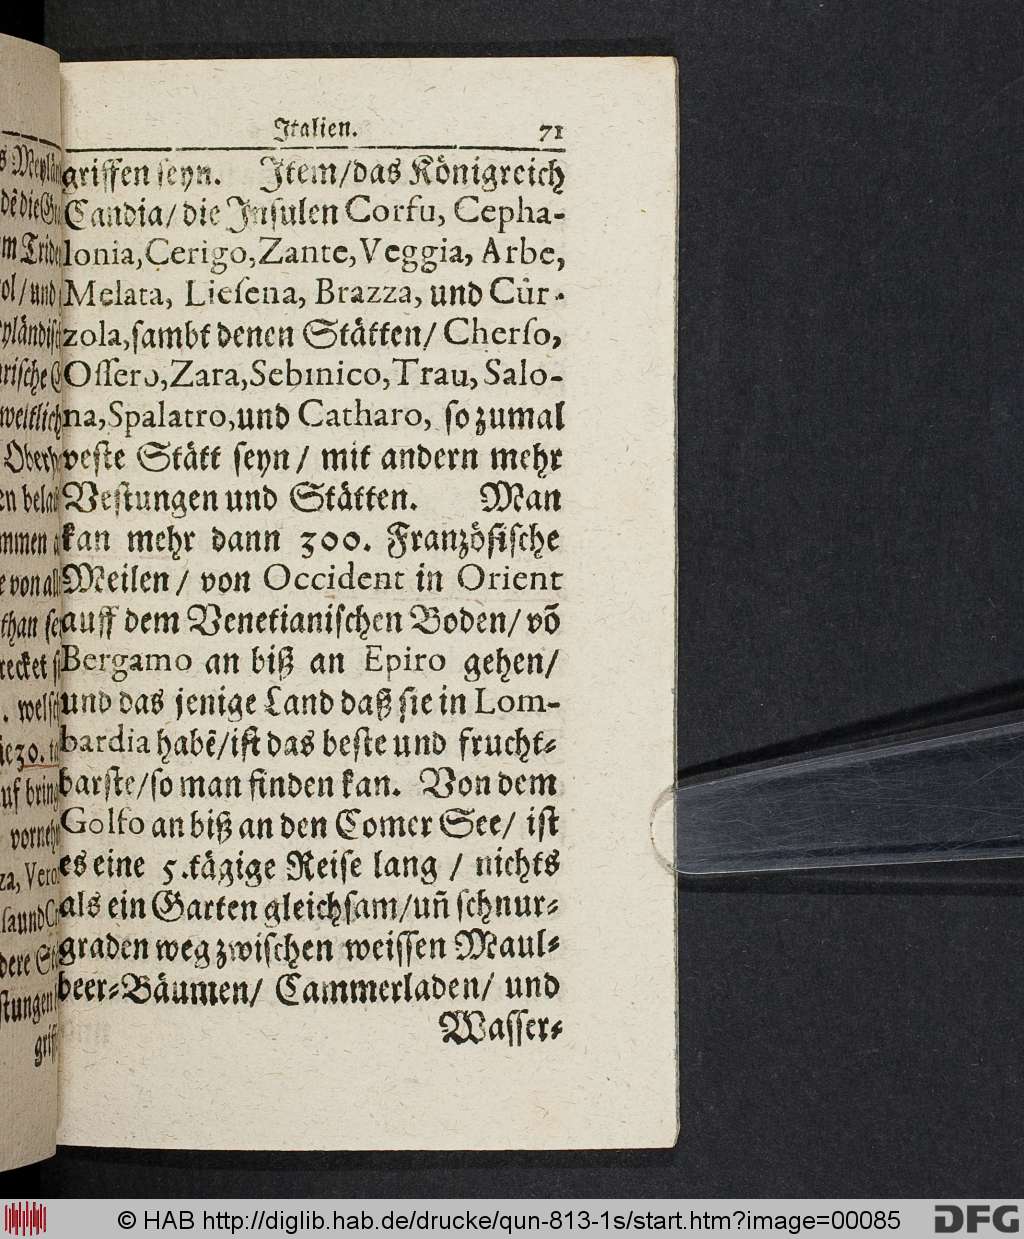 Italien. 71
griffen seyn. Item/das Königreich
Candia/ die Insulen Corfu, Cepha-
lonia, Cerigo, Zante, Veggia, Arbe,
Melata, Liesena, Brazza, und Cůr-
zola, sambt denen Stätten/ Cherso,
Ossero, Zara, Sebinico, Trau, Salo-
na, Spalatro, und Catharo, so zumal
veste Stätt seyn/ mit andern mehr
Vestungen und Stätten. Man
kan mehr dann 300. Französische
Meilen/ von Occident in Orient
auff dem Venetianischen Boden/ võ
Bergamo an biß an Epiro gehen/
und das jenige Land daß sie in Lom-
bardia habẽ/ist das beste und frucht-
barste/so man finden kan. Von dem
Golfo an biß an den Comer See/ ist
es eine 5.tägige Reise lang / nichts
als ein Garten gleichsam/uñ schnur-
graden weg zwischen weissen Maul-
beer-Bäumen/ Cammerladen/ und
Wasser-
© HAB http://diglib.hab.de/drucke/qun-813-1s/start.htm?image=00085
DFG